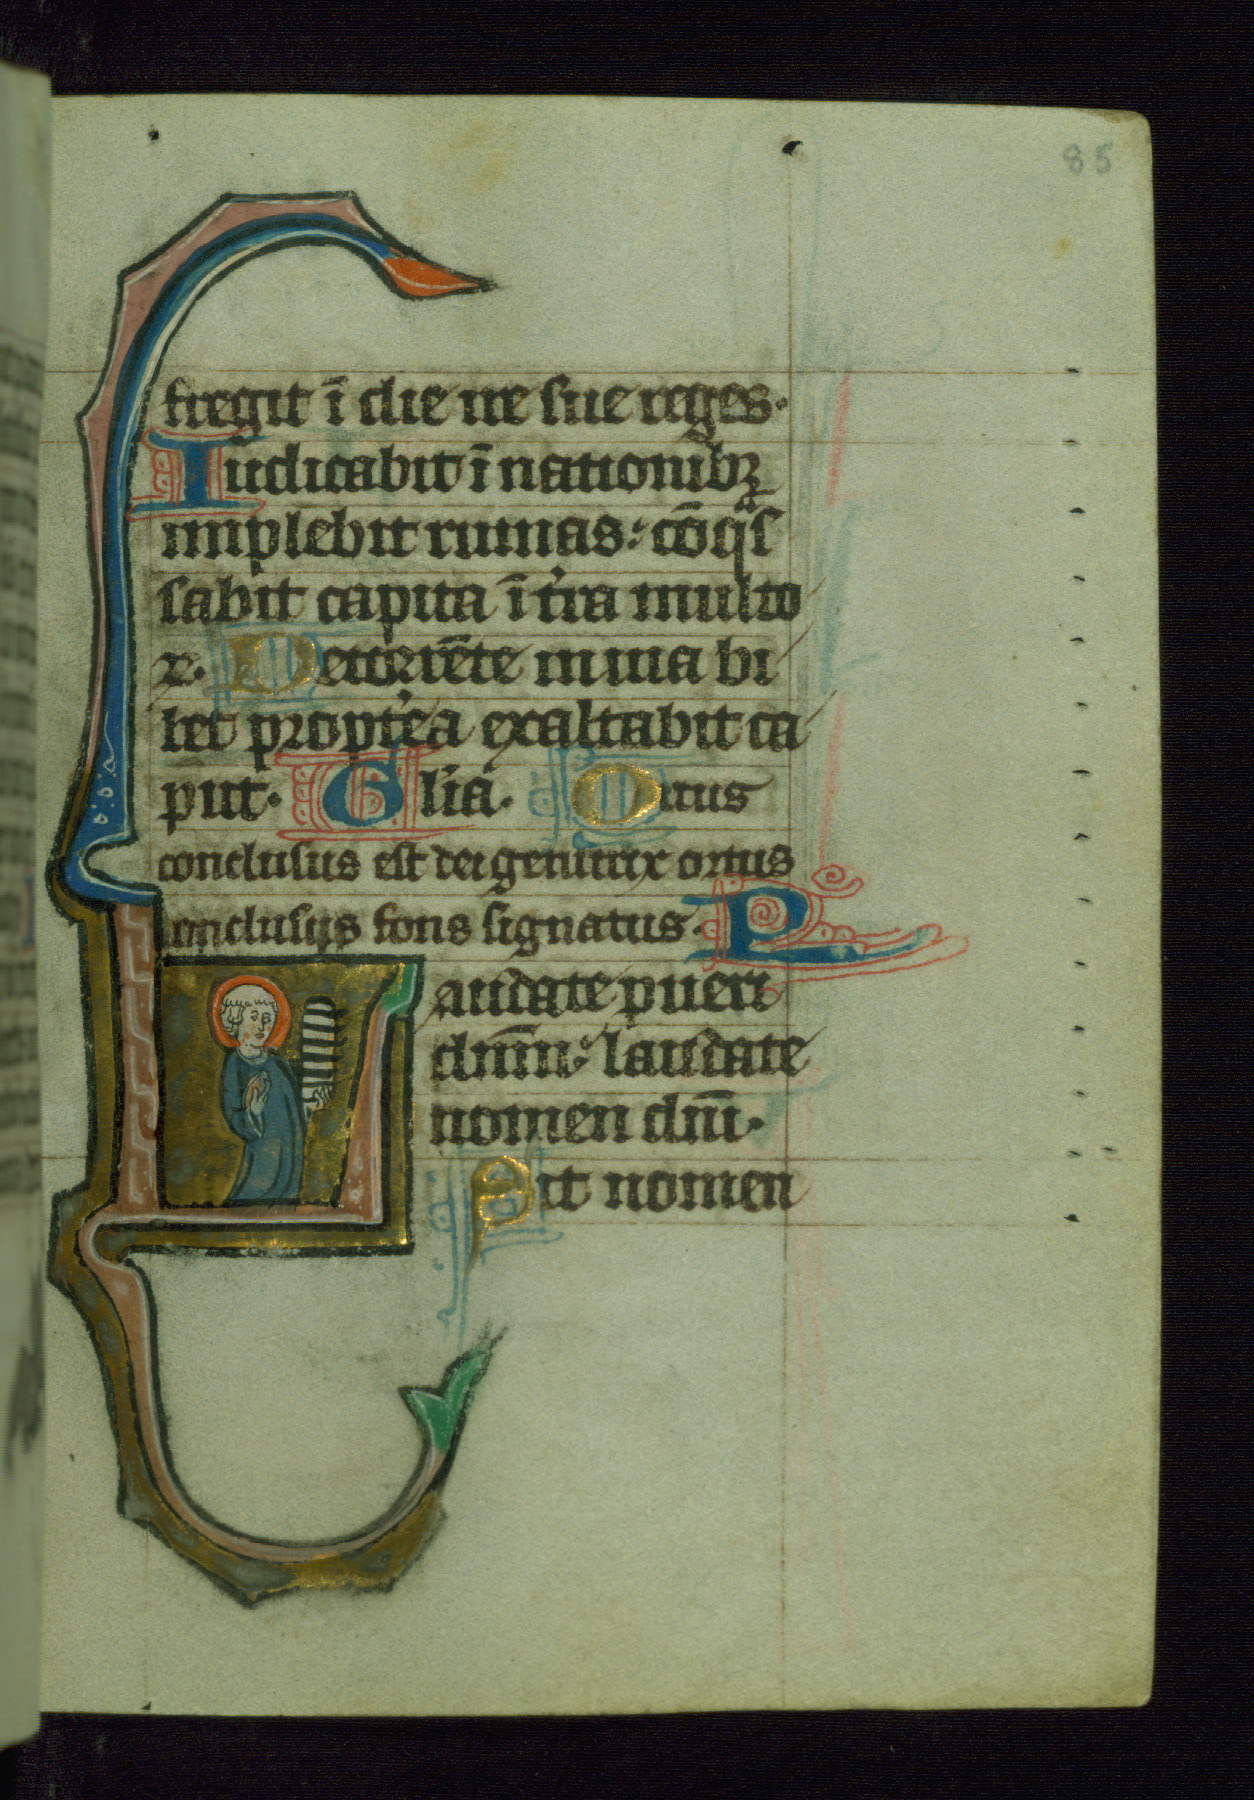 85
fregit ī die ire sue reges.
Iudicabit ī nationibꝫ
implebit ruinas: cōqͣs
sabit capita ī t̾ra multo
ꝝ. De torrēte in uia bi
bet propt̾ea exaltabit ca
put. Gl̾ia. Ortus
conclusus est dei genitrix ortus
conclusus fons signatus. P
Laudate pueri
dnm̄: laudate
nomen dnī.
Sit nomen